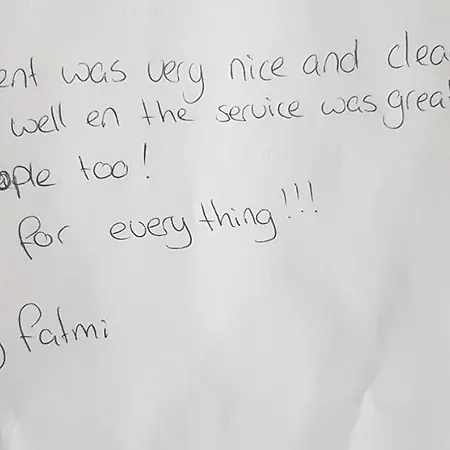 ent was very nice and clea
well en the service was great
ople too!
for everything!!!
fatmi